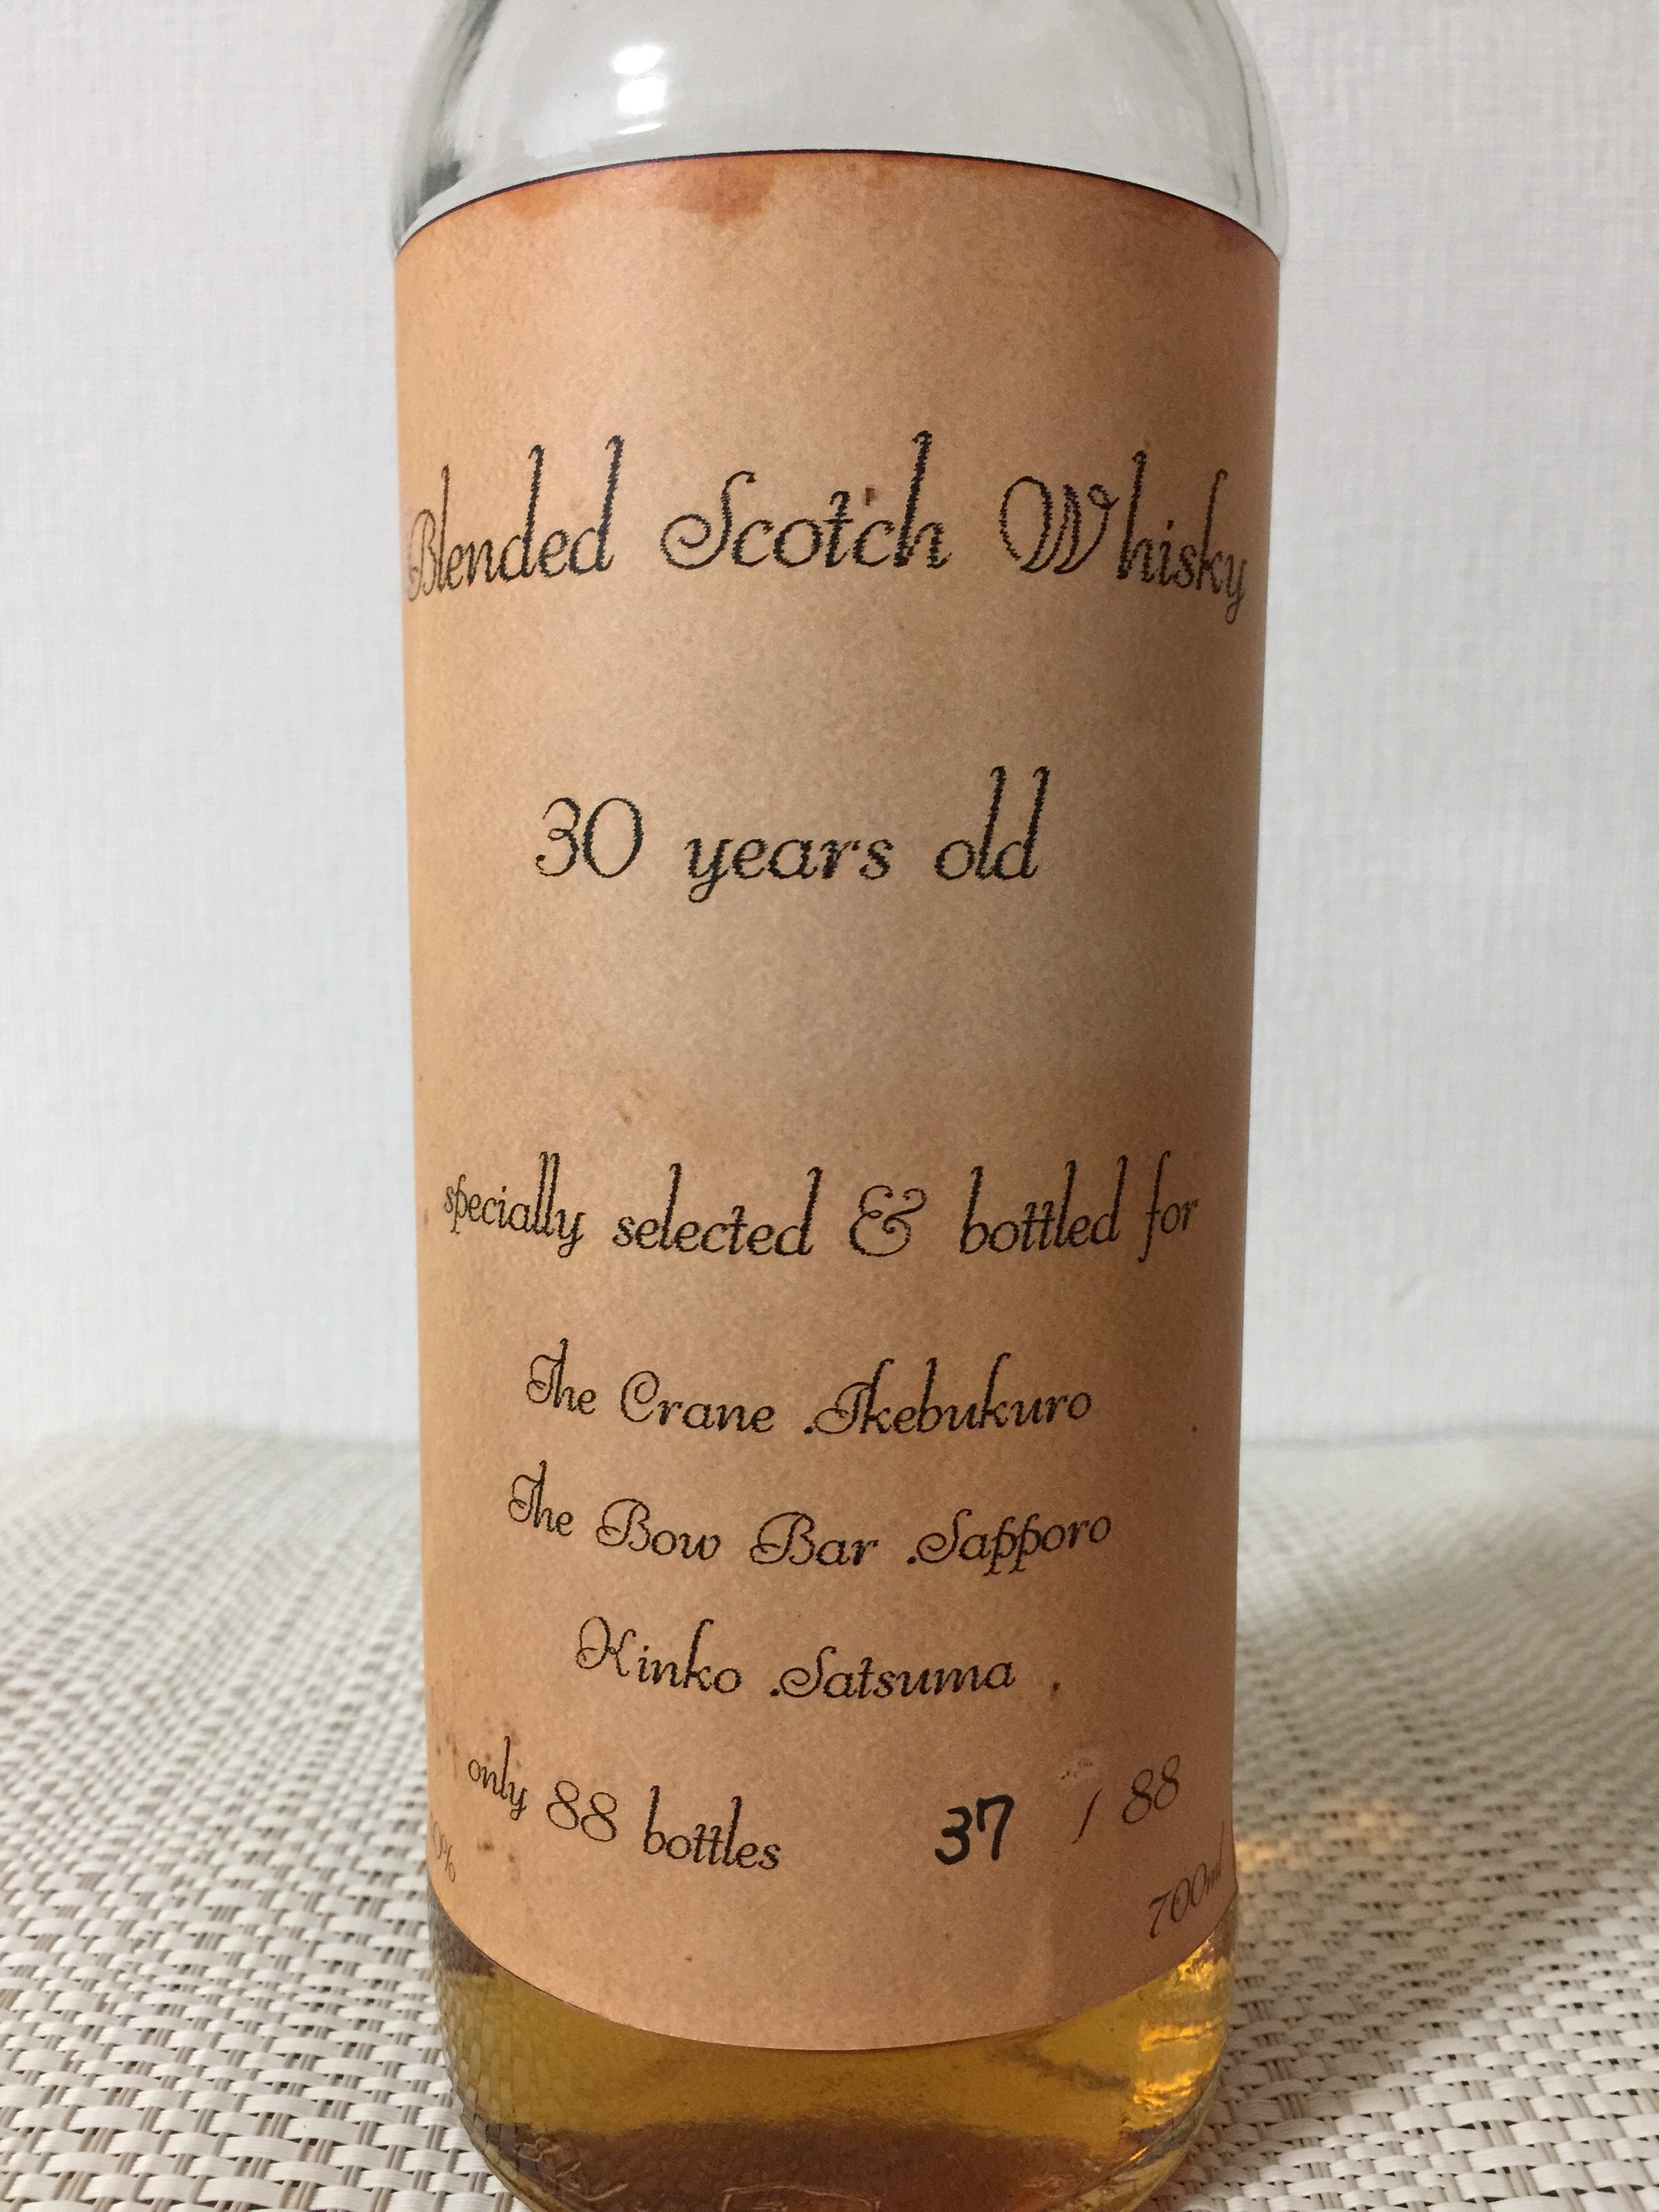 Blended Scotch Whisky
30 years old
specially selected & bottled for
The Crane .Ikebukuro
The Bow Bar .Sapporo
Kinko .Satsuma
only 88 bottles 37 / 88
700ml